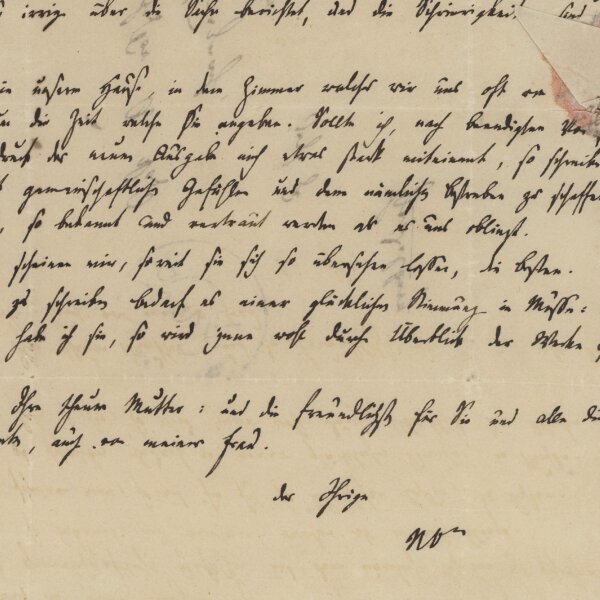 irrig über die Sache berichtet, und die Schwierigkeit sind
in unserm Hause, in dem Zimmer welches wir uns oft
die Zeit welche Sie angeben. Sollte ich, nach beendigtem
druck der neuen Ausgabe auch etwas stark mitnimmt, so schreiben
gemeinschaftliche Gefühle und dem nämlichen Bestreben zu schaffen
, so bekannt und vertraut werden als es uns obliegt.
scheinen mir, soweit sie sich so übersehen lassen, die besten.
zu schreiben bedarf es einer glücklichen Stimmung in Musse:
habe ich sie, so wird jene wohl durch Überblick der Werke
Ihre theure Mutter: und die freundlichsten für Sie und alle die
, auch von meiner Frau.
der Ihrige